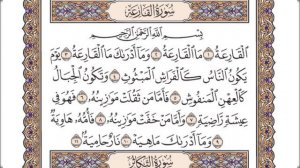 سُورَةُ القَارِعَةِ
بِسْمِ اللَّهِ الرَّحْمَٰنِ الرَّحِيمِ
الْقَارِعَةُ ١ مَا الْقَارِعَةُ ٢ وَمَا أَدْرَىٰكَ مَا الْقَارِعَةُ ٣ يَوْمَ
يَكُونُ النَّاسُ كَالْفَرَاشِ الْمَبْثُوثِ ٤ وَتَكُونُ الْجِبَالُ
كَالْعِهْنِ الْمَنفُوشِ ٥ فَأَمَّا مَن ثَقُلَتْ مَوَٰزِينُهُ ٦ فَهُوَ فِي
عِيشَةٍ رَّاضِيَةٍ ٧ وَأَمَّا مَنْ خَفَّتْ مَوَٰزِينُهُ ٨ فَأُمُّهُ هَاوِيَةٌ
٩ وَمَا أَدْرَىٰكَ مَا هِيَهْ ١٠ نَارٌ حَامِيَةٌ ١١
سُورَةُ التَّكَاثُرِ